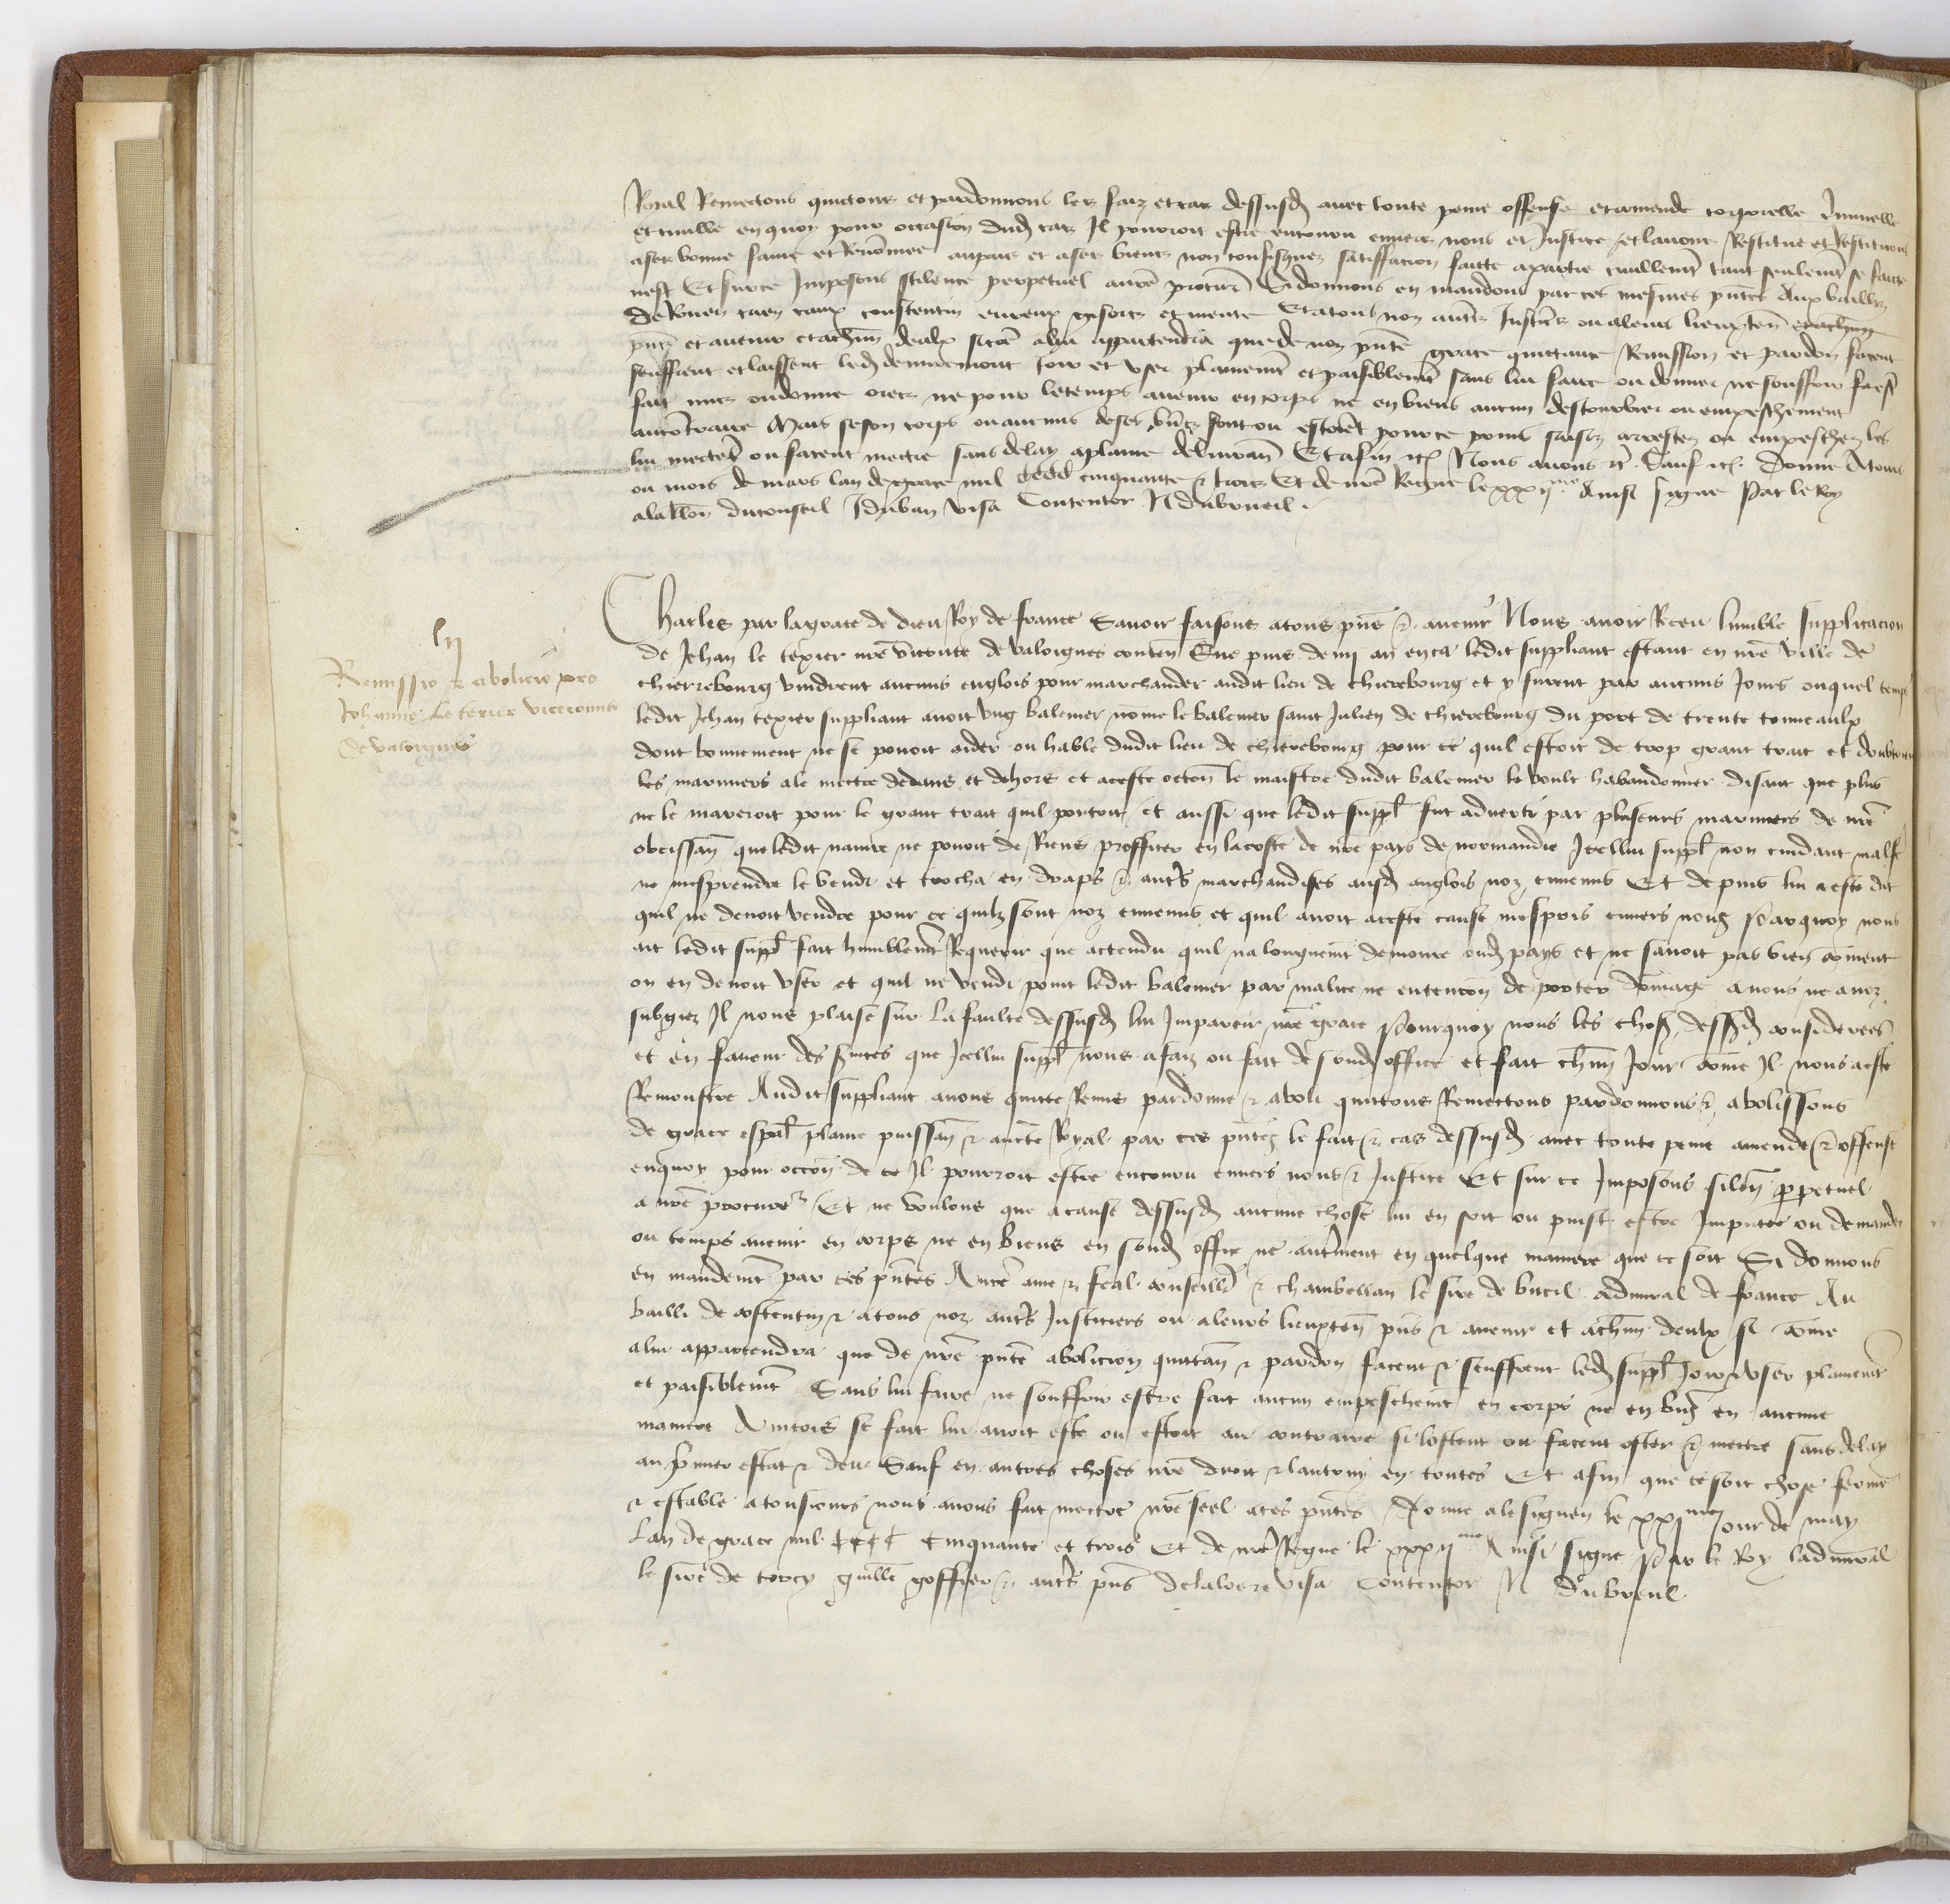 Royal Remectons quictons et pardonnons les faiz et cas dessusd avec toute peine offense et amende corporelle criminelle
et civille en quoy pour occasion dud cas Il pourroit estre encouru envers nous et Justice et lavons Restitue et Restituons
a ses bonne fame et Renommee au pais et a ses biens non confisquez satisfacion faicte a partie civillemt tant seulemt se faicte
nest Et sur ce Imposons silence perpetuel a nre procur Si donnons en mandemt par ces mesmes pntes aux bailliz
de Rouen caen caux constentin evreux gisors et mente Et a tous noz autres Justic ou a leurs lieuxten
pns et avenir et a chun deulx si coe a lui appartendra que de noz pnte grace quictance Remission et pardon facent
seuffrent et laissent led de joir et user plainemt et paisiblemt sans lui faire ou donner ne souffrir
fait mis ou donne ores ne pour le temps avenir en corps ne en biens aucun destourbier ou empeschement
au contraire Mais se son corps ou aucuns de ses biens sont ou estoiet pour ce prins saisiz arrestez ou empeschez les
lui mectet ou facent mectre sans delay a plaine delivran Et afin etc Nous avons etc Sauf etc Donne a Tours
ou mois de mars lan de grace mil cccc cinquante et trois Et de nre Regne le xxxijme Ainsi signe Par le Roy
a la Relon du conseil Visa Contentor N du brueil

Charles par la grace de dieu Roy de france Savoir faisons a tous pns et avenir Nous avoir Receu lumble supplicacion
de Jehan le texier nre viconte de valoignes conten Que puis demi an en ca ledit suppliant estant en nre ville de
chierrebourg vindrent aucuns englois pour marchander audit lieu de chierebourg et y furent par aucuns Jours ouquel temps
ledit Jehan texier suppliant avoit ung balener nomme le balener saint Julien de chierebourg du port de trente tonneaulx
dont bonnement ne se povoit aider ou hable dudit lieu de chierebourg pour ce quil estoit de trop grant trait et doubtoient
les mariniers a le mectre dedans et dehors et a ceste occon le maistre dudit balener le voult habandonner disant que plus
ne le pour le grant trait quil portoit et aussi que ledit suppl fut adverti par pluseurs mariniers de nre
obeissan que ledit navire ne povoit de Riens proffiter en la coste de nre pays de normandie Icellui suppl non cuidant malfe
ne mesprendre le vendi et trocha en draps et autrs marchandises ausd anglois noz ennemis Et depuis lui a este dit
quil ne devoit vendre pour ce quilz sont noz ennemis et quil avoit a ceste cause mespris envers nous Par quoy nous
ait ledit suppl fait humblemt Requerir que actendu quil na longuemt demoure oud pays et ne savoit pas bien comment
on en devoit user et quil ne vendi point ledit balener par malice ne entencon de porter dommage a nous ne a noz
subgiez Il nous plaise sur la faulte dessusd lui Impartir nre grace Pourquoy nous les choses dessusd considerees
et en faveur des svices que Icellui suppl nous a faiz ou fait de sond office et fait chun Jour comme Il nous a este
Remonstre Audit suppliant avons quicte Remis pardonne et aboli quictons Remectons pardonnons et abolissons
de grace espal plaine puissan et aucte Royal par ces pntes le fait et cas dessusd avec toute peine amende et offense
en quoy pour occon de ce Il pourroit estre encouru envers nous et Justice Et sur ce Imposons silen perpetuel
a nre procureur Et ne voulons que a cause dessusd aucune chose lui en soit ou puist estre Imputee ou demandee
ou temps avenir en corps ne en biens en sond office ne autrement en quelque maniere que ce soit Si donnons
en mandemt par ces pntes A nre ame et feal conseillr et chambellan le sire de bueil admiral de france Au
bailli de costentin et a tous noz autrs Justiciers ou a leurs lieuxten pns et avenir et a chun deulx si comme
a lui appartendra que de nre pnte abolicion quictan et pardon facent et seuffrent led suppl Joir et user plainemt
et paisiblemt Sans lui faire ne souffrir estre fait aucun empeschemt en corps ne en biens en aucune
maniere Aincois se fait lui avoit este ou estoit au contraire si lostent ou facent oster et mectre sans delay
au premier estat et deu Sauf en autres choses nre droit et lautruy en toutes Et afin que ce soit chose ferme
et estable a tousiours nous avons fait mectre nre seel a ces pntes Donne a lesignen le xxjme Jour de may
Lan de grace mil cccc Cinquante et trois Et de nre Regne le xxxijme Ainsi signe Par le Roy ladmiral
le sire de torcy guille gouffier et autrs pns delaloere visa Contentor N du breuil

lij
Remissio et abolicio pro
Johanne Le texier vicecomite
de valoignes